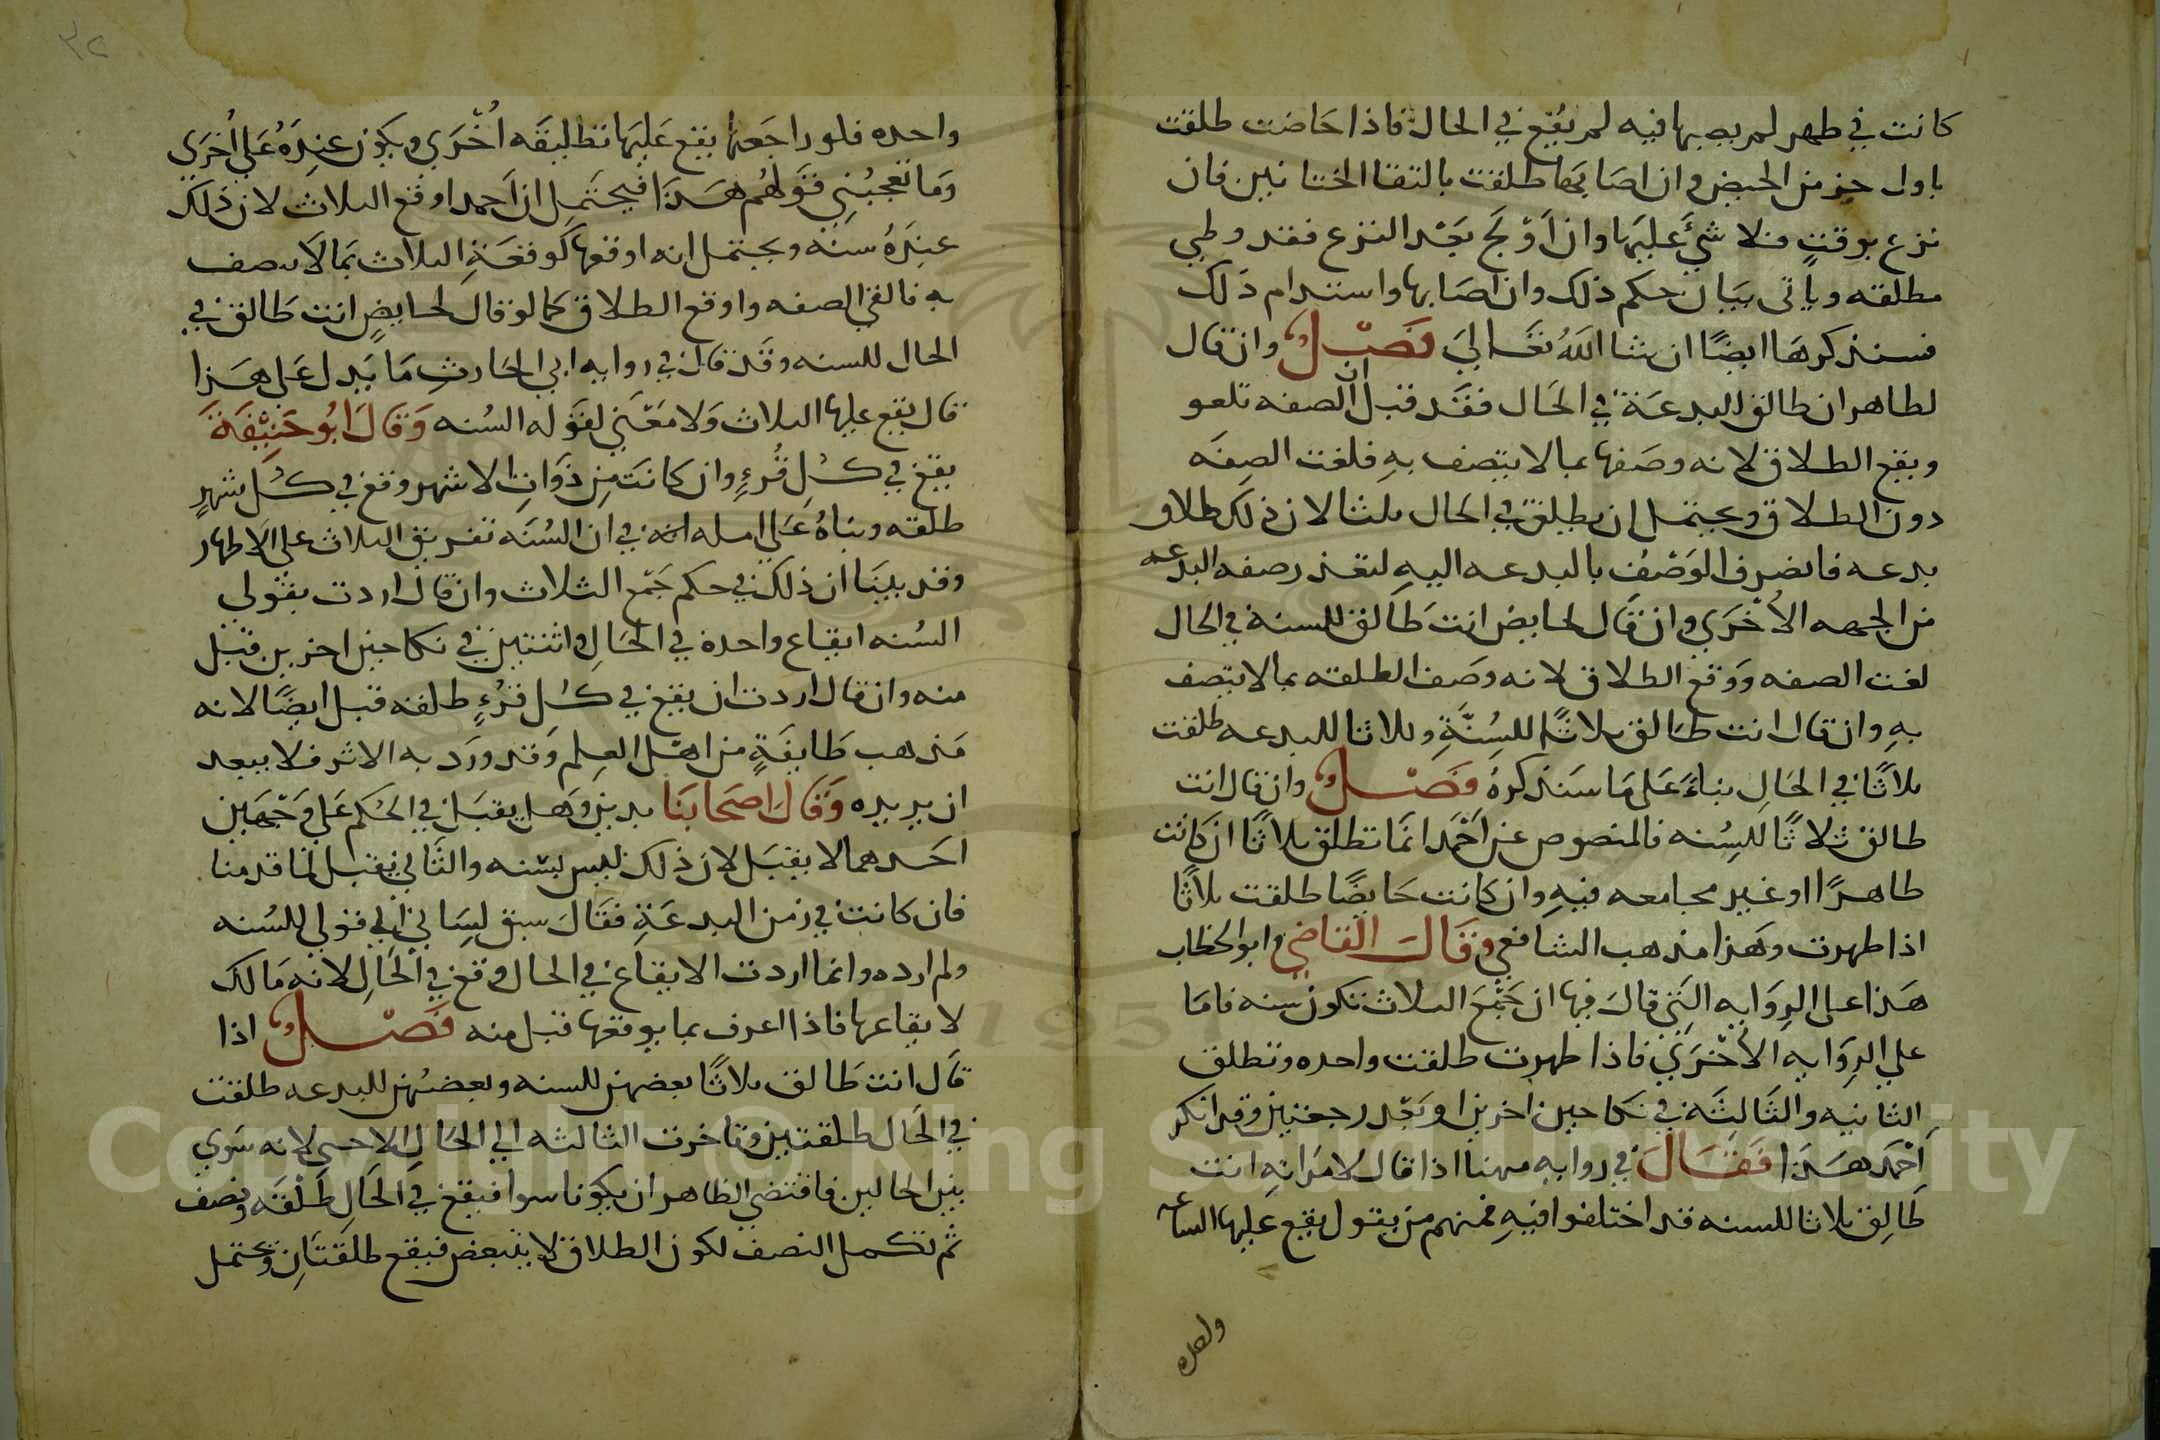 كانت في طهر لم يصبها فيه لم يقع في الحال فاذا حاضت طلقت
باول جزء من الحيض وان اصابها طلقت بالتقا الختانين فان
نزع بوقت فلا شيء عليها وان اولج بعد النزع فقد وطي
مطلقته وياتى بيان حكم ذلك وان اصابها واستدام ذلك
فسنذكرها ايضًا ان شا الله تعالى فصل وان قال
لطاهر انت طالق للبدعة في الحال فقد قيل ان الصفه تلغو
ويقع الطلاق لانه وصفها بما لا يتصف به فلغت الصفه
دون الطلاق ويحتمل ان يطلق في الحال ثلثا لان ذلك طلاق
بدعه فانصرف الوصف بالبدعه اليه لتعذر صفه البدعه
من الجهه الاخرى وان قال لحايض انت طالق للسنة في الحال
لغت الصفه ووقع الطلاق لانه وصف الطلقه بما لا يتصف
به وان قال انت طالق ثلاثًا للسنة وثلاثا للبدعه طلقت
ثلاثًا في الحال بناءً على ما سنذكره فصل وان قال انت
طالق ثلاثًا للسنه فالمنصوص عن احمد انها تطلق ثلاثًا ان كانت
طاهرًا او غير مجامعه فيه وان كانت حايضًا طلقت ثلاثًا
اذا طهرت وهذا مذهب الشافعي وقال القاضي وابو الخطاب
هذا على الروايه التي قال فيها ان جمع الثلاث تكون سنه فاما
علي الروايه الاخرى فاذا طهرت طلقت واحده وتطلق
الثانيه والثالثه في نكاحين اخرين او بعد رجعتين وقد انكر
احمد هذا فقال في روايه مهنا اذا قال لامراته انت
طالق ثلاثا للسنه قد اختلفوا فيه فمنهم من يقول يقع عليها الساعه
واحده فلو راجعها يقع عليها تطليقه اخرى ويكون عنده على اخرى
وما تعجبني قولهم هذا فيحتمل ان احمد اوقع الثلاث لان ذلك
عنده سنه ويحتمل انه اوقعها لوقعة الثلاث بما لا يتصف
به فالغي الصفه واوقع الطلاق كما لو قال لحايض انت طالق في
الحال للسنه وقد قال في روايه ابي الحارث ما يدل على هذا
قال يقع عليها الثلاث ولا معنى لقوله السنه وقال ابو حنيفة
يقع في كل قرء وان كانت من ذوات الاشهر وقع في كل شهر
طلقه وبناه على اصله في ان السنه تفريق الثلاث على الاطهار
وقد بينا ان ذلك في حكم جمع الثلاث وان قال اردت بقولي
السنه ايقاع واحدة في الحال واثنتين في نكاحين اخرين قبل
منه وان قال اردت ان يقع في كل قرء طلقه قبل ايضًا لانه
مذهب طايفة من اهل العلم وقد ورد به الاثر فلا يبعد
ان يريده وقال اصحابنا يدين وهل يقبل في الحكم على وجهين
احدهما لا يقبل لان ذلك ليس بسنه والثاني يقبل لما قدمنا
فان كانت في زمن البدعة فقال سبق لساني الى قولي للسنه
ولم ارده وانما اردت الايقاع في الحال وقع في الحال لانه مالك
لايقاعها فاذا اعرف بما يوقعها قبل منه فصل اذا
قال انت طالق ثلاثًا بعضهن للسنه وبعضهن للبدعه طلقت
في الحال طلقتين وتاخرت الثالثه الى الحال الاخرى لانه سوى
بين الحالين فاقتضى الظاهر ان يكونا سوا فيقع في الحال طلقه ونصف
ثم تكمل النصف لكون الطلاق لا يتبعض فيقع طلقتان ويحتمل